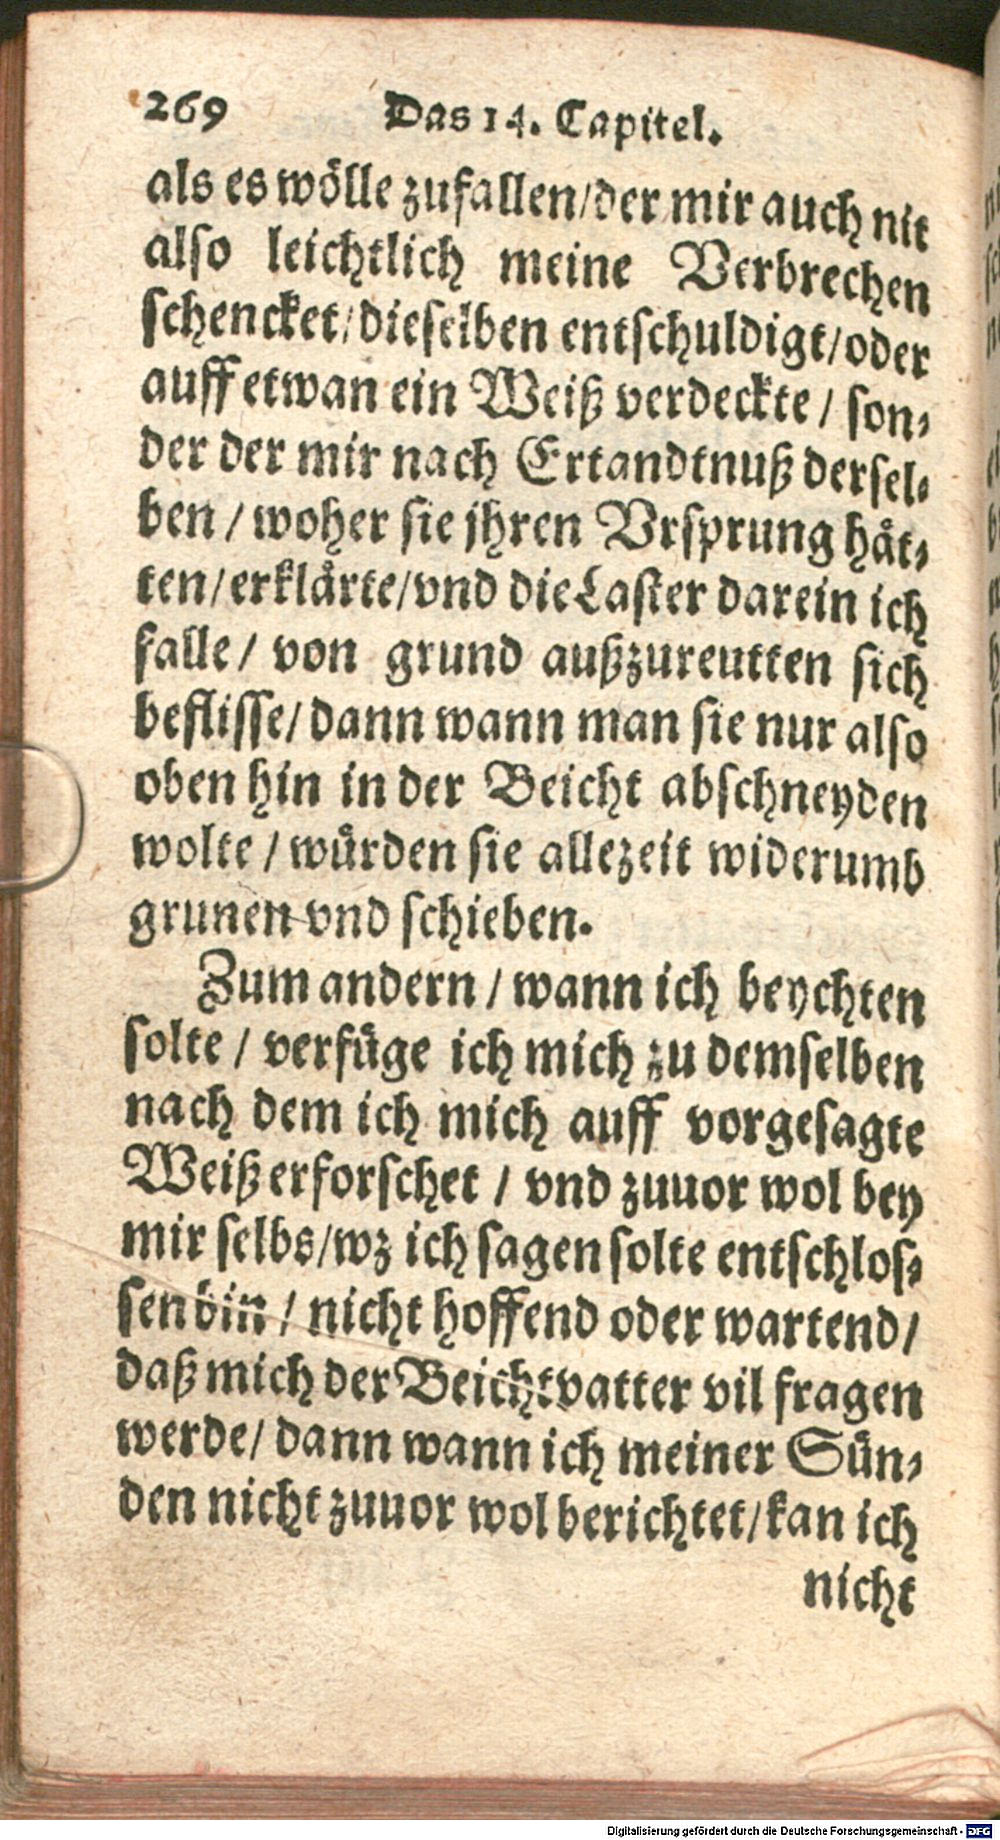 269 Das 14. Capitel.
als es wölle zufallen/der mir auch nit
also leichtlich meine Verbrechen
schencket/dieselben entschuldigt/oder
auff etwan ein Weiß verdeckte / son⸗
der der mir nach Erkandtnuß dersel⸗
ben / woher sie jhren Vrsprung hät⸗
ten/erklärte/vnd die Laster darein ich
falle / von grund außzureutten sich
beflisse/dann wann man sie nur also
oben hin in der Beicht abschneyden
wolte / würden sie allezeit widerumb
grunen vnd schieben.
Zum andern / wann ich beychten
solte / verfüge ich mich zu demselben
nach dem ich mich auff vorgesagte
Weiß erforschet / vnd zuuor wol bey
mir selbs/wz ich sagen solte entschlos⸗
sen bin / nicht hoffend oder wartend/
daß mich der Beichtvatter vil fragen
werde/ dann wann ich meiner Sün⸗
den nicht zuuor wol berichtet/kan ich
nicht
Digitalisierung gefördert durch die Deutsche Forschungsgemeinschaft - DFG